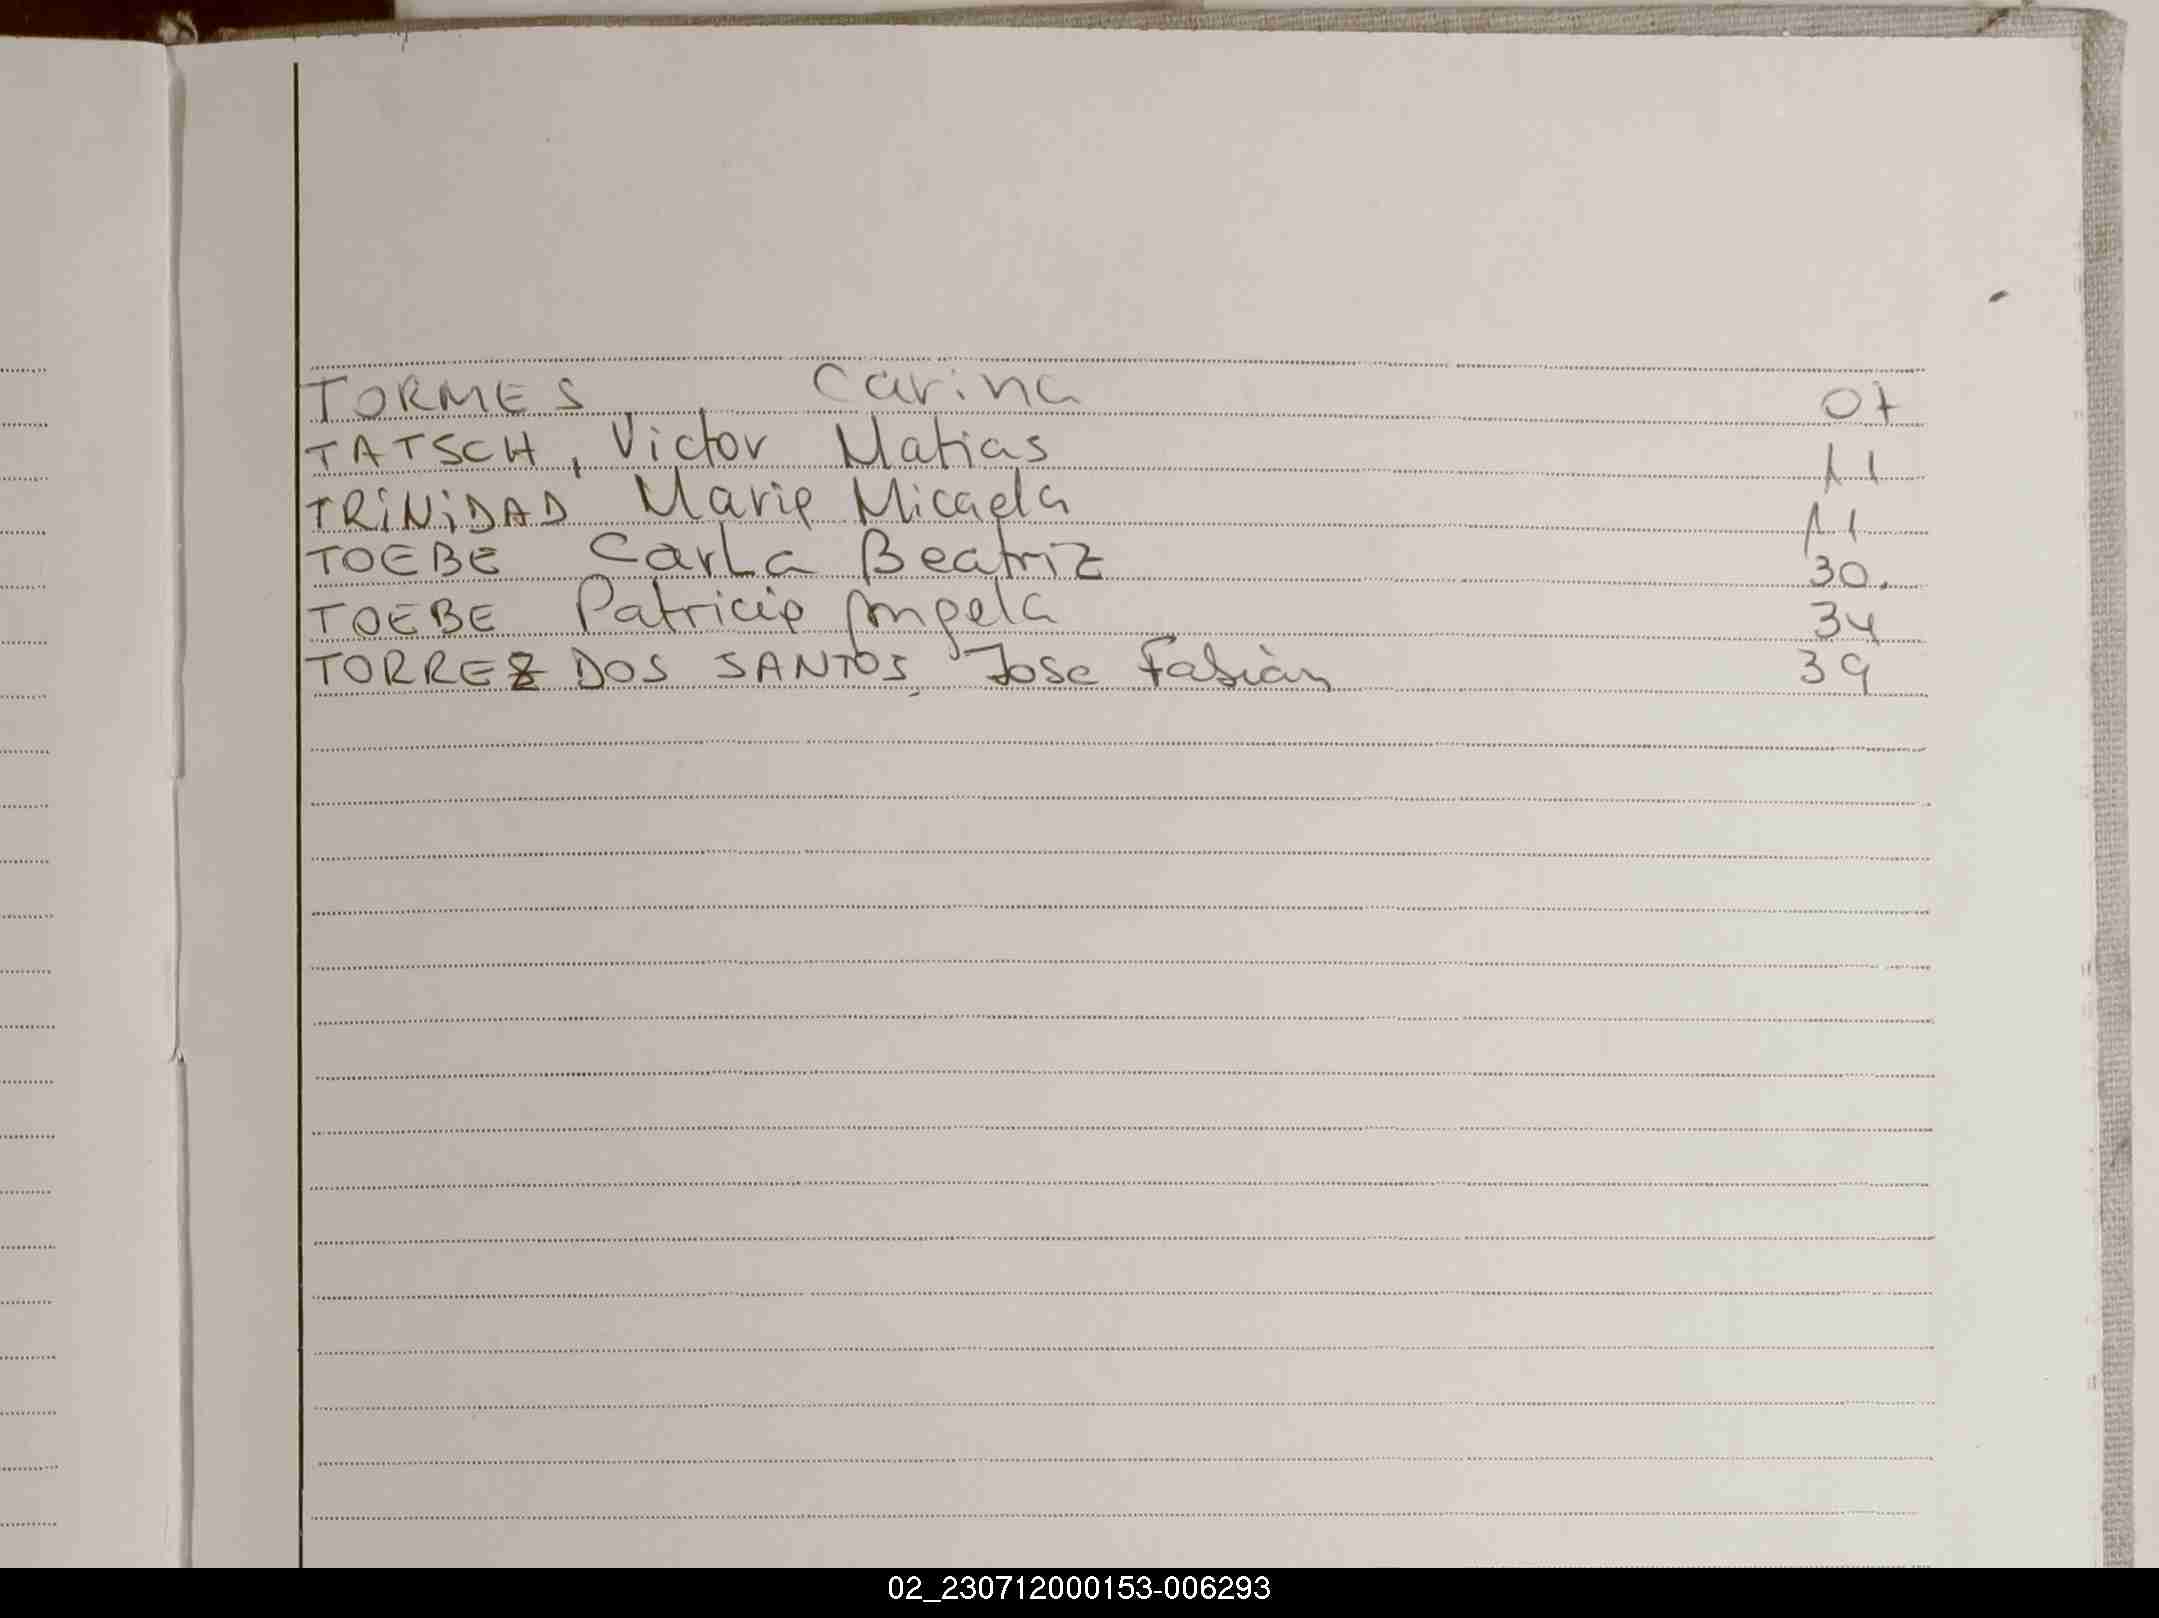 TORMES Carina 07
TATSCH, Victor Matias 11
TRINIDAD Marie Micaela 11
TOEBE Carla Beatriz 30.
TOEBE Patricia Angela 34
TORREZ DOS SANTOS, Jose Fabián 39
02_230712000153-006293